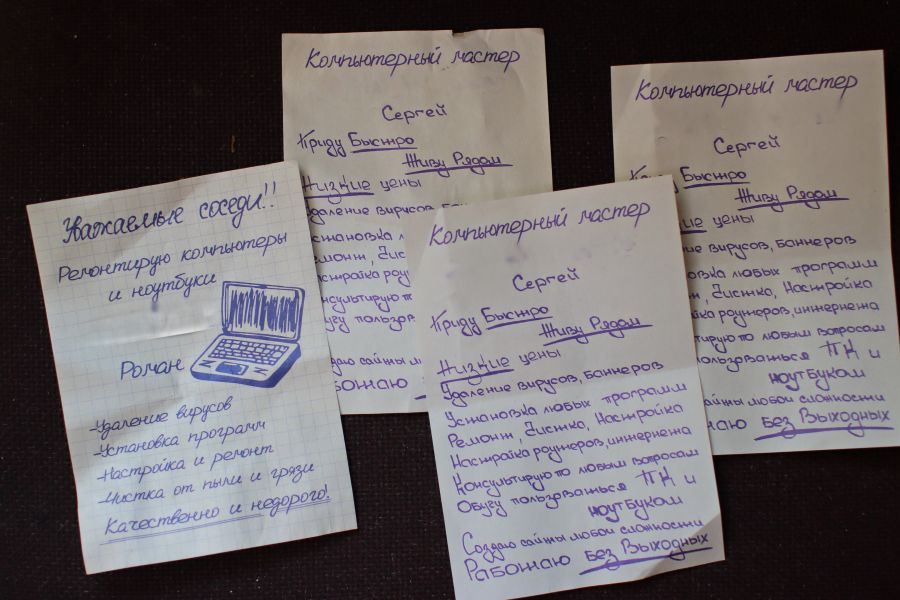 Уважаемые соседи!!
Ремонтирую компьютеры
и ноутбуки
Роман
-Удаление вирусов
-Установка программ
-Настройка и ремонт
-Чистка от пыли и грязи
Качественно и недорого!
Компьютерный мастер
Сергей
Приду Быстро
Живу Рядом
Низкие цены
Удаление вирусов,
Настройка
Создаю сайты
Работаю
Компьютерный мастер
Сергей
Приду Быстро
Живу Рядом
Низкие цены
Удаление вирусов, Баннеров
Установка любых программ
Ремонт, Чистка, Настройка
Настройка роутеров, интернета
Консультирую по любым вопросам
Обучу пользоваться ПК и
ноутбуком
Создаю сайты любой сложности
Работаю Без Выходных
Компьютерный мастер
Сергей
Быстро
Живу Рядом
цены
вирусов, Баннеров
любых программ
Чистка, Настройка
роутеров, интернета
по любым вопросам
пользоваться ПК и
ноутбуком
сайты любой сложности
Без Выходных